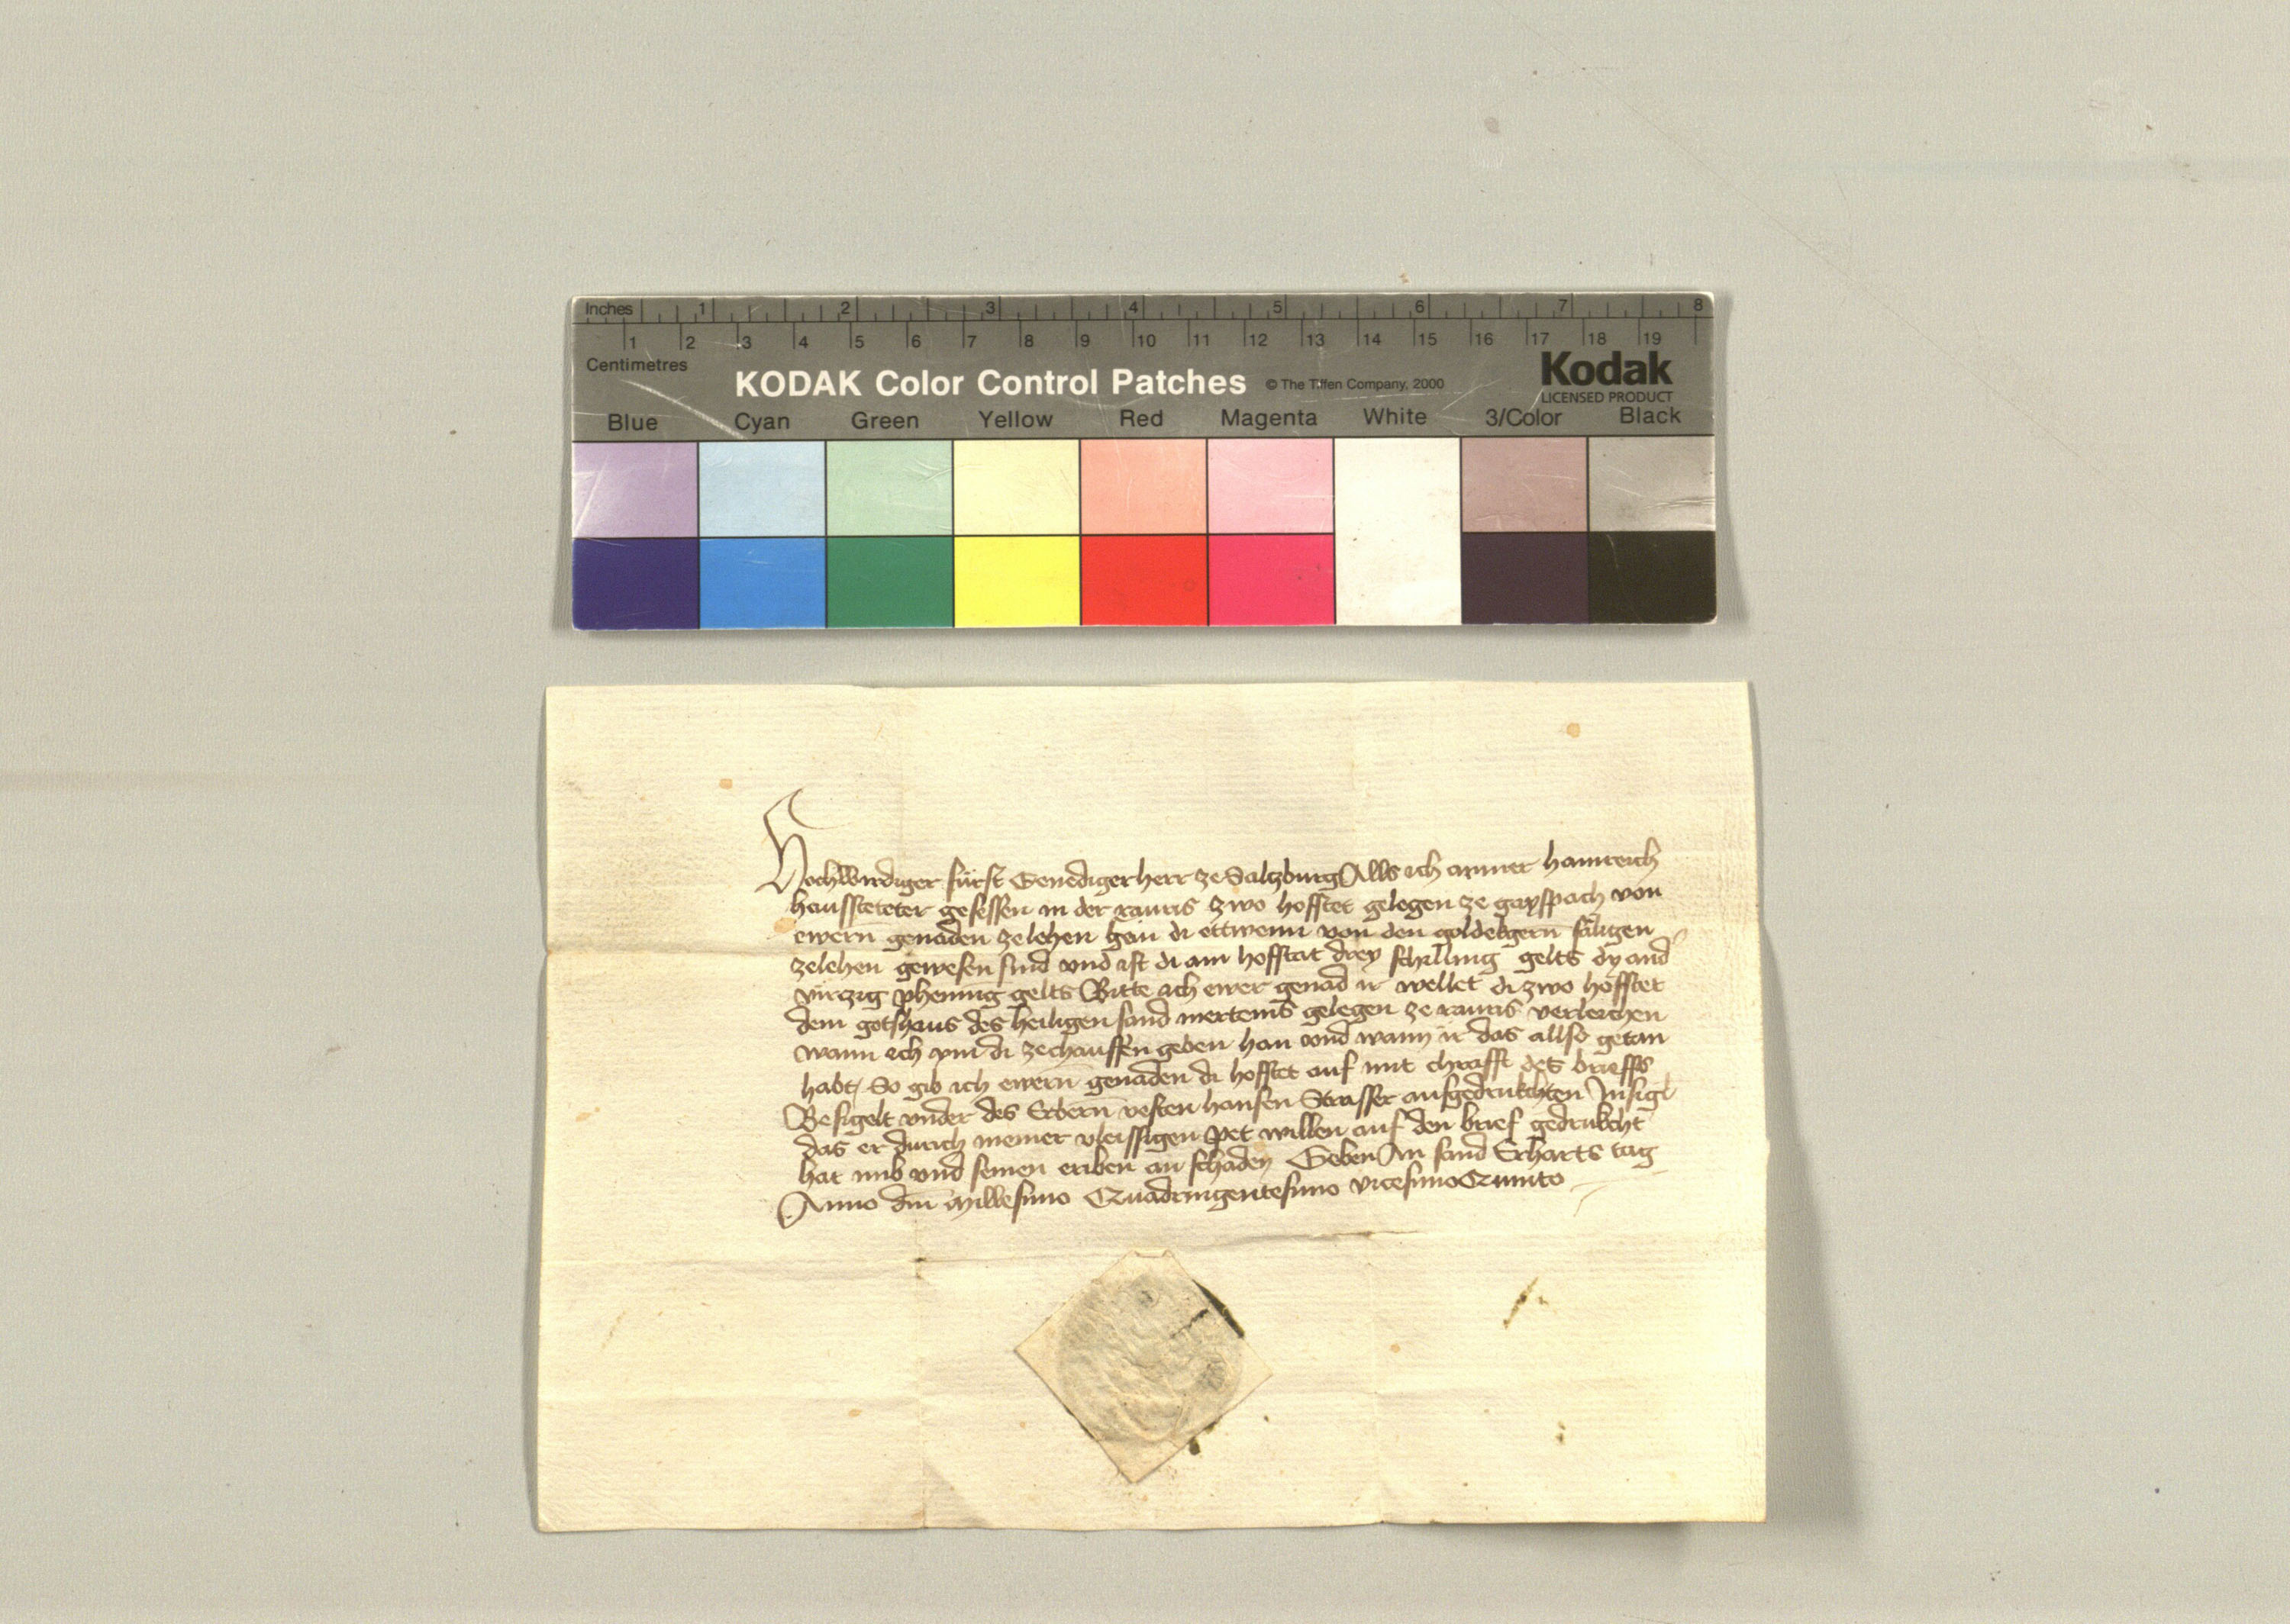 Inches 1 2 3 4 5 6 7 8
1 2 3 4 5 6 7 8 9 10 11 12 13 14 15 16 17 18 19
Centimetres
KODAK Color Control Patches © The Tiffen Company, 2000 Kodak
LICENSED PRODUCT
Blue Cyan Green Yellow Red Magenta White 3/Color Black
Hochwirdiger fürst Genediger herr ze Salzburg Alls ich armer hainreich
haussteteter gesessen in der rauris zwo hofstet gelegen ze gayspach von
ewern genaden zelehen han di ettwenn von den goldekgern säligen
zelehen gewesen sind vnd ist di ain hofstat drey schilling gelts dy and
virczig phening gelts Bitte ich ewer genad ir wellet di zwo hofstet
dem gotshaus des heiligen sand merteins gelegen ze rauris verleichen
wann ich ym di ze chauffen geben han vnd wann ir das allso getan
habt / So gib ich ewern genaden di hofstet auf mit chrafft des brieffs
Besigelt vnder des Erbern vesten hansen Strasser aufgedrukchten Insigl
das er durich meiner vleissigen pet willen auf den brief gedrukcht
hat imb vnd seinen eriben an schaden Geben An sand Erharts tag
Anno dm̄ Millesimo Quadringentesimo vicesimo Quinto